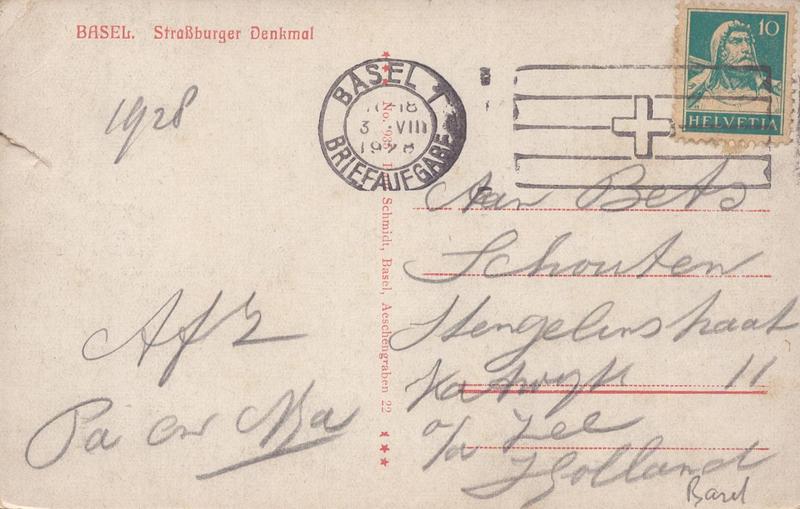 BASEL. Straßburger Denkmal
10
HELVETIA
BASEL 1
-18
3 VIII
1928
BRIEFAUFGABE
1928
Afz
Pa en Ma
Schmidt, Basel, Aeschengraben 22
Aan Bets
Schouten
Stengelinstraat
Katwyk 11
a/d Zee
Holland
Basel